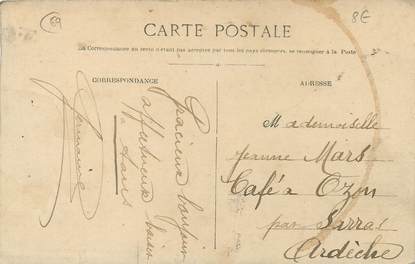 69
8€
CARTE POSTALE
La Correspondance au recto n'étant pas acceptée par tous les pays étrangers, se renseigner à la Poste
CORRESPONDANCE
ADRESSE
Gracieux bonjour
affectueux baiser
Germaine
Mademoiselle
Jeanne Mars
Café à Ozon
par Sarras
Ardèche